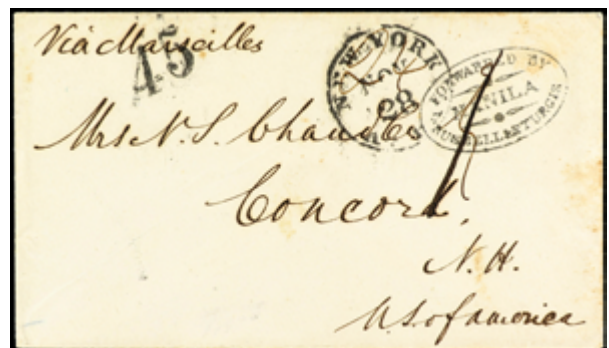 Via Marseilles
45
NEW YORK
NOV
28
FORWARDED BY
MANILA
RUSSELL & STURGIS
Mrs N. S. Chandler
Concord,
N. H.
U. S. of America